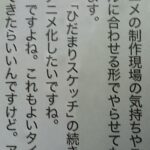 メの制作現場の気持ちや
んに合わせる形でやらせて
す。
「ひだまりスケッチ」の続き
ニメ化したいですね。
ですよね。これもよいタ
きたらいいんですけど。ア